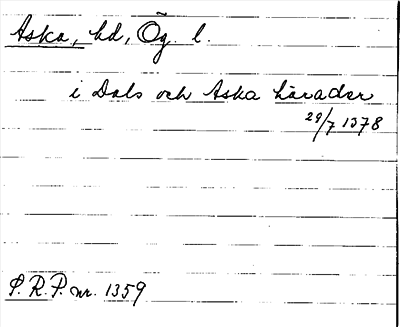 Aska, hd, Ög. l.
i Dals och Aska härader
29/7 1378
S.R.P. nr. 1359